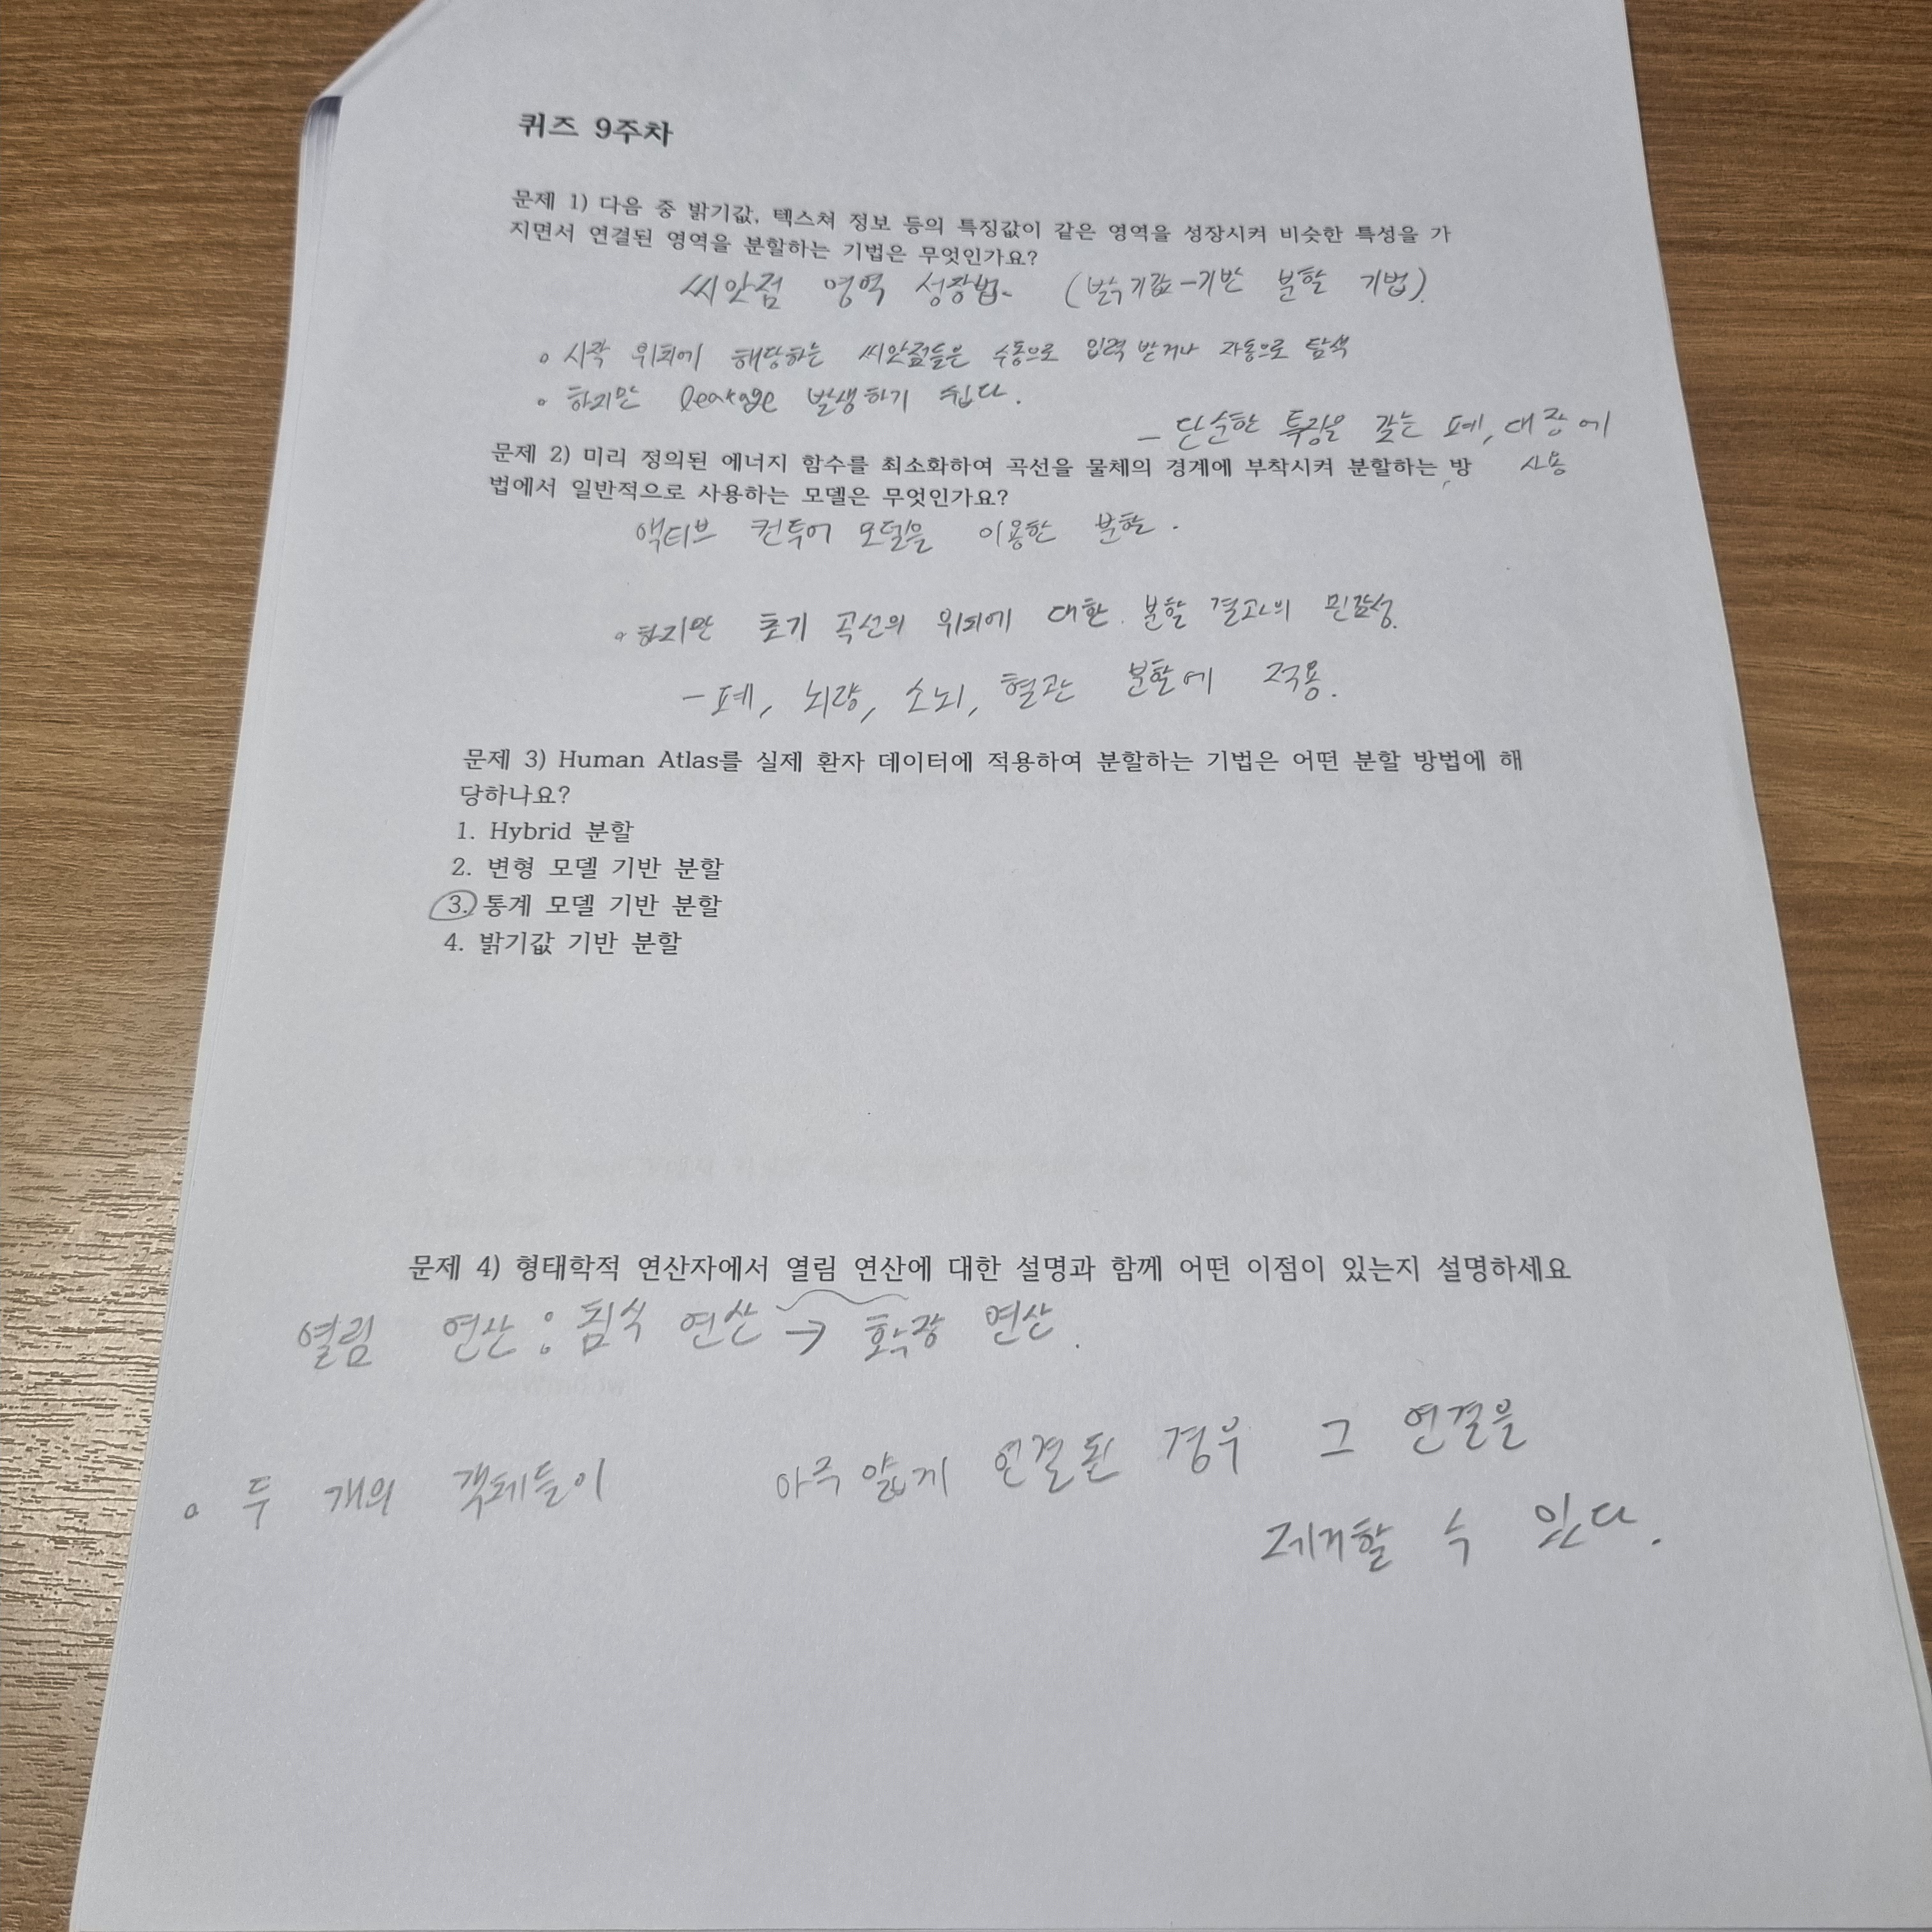 퀴즈 9주차
문제 1) 다음 중 밝기값, 텍스쳐 정보 등의 특징값이 같은 영역을 성장시켜 비슷한 특성을 가
지면서 연결된 영역을 분할하는 기법은 무엇인가요?
씨앗점 영역 성장법. (밝기값-기반 분할 기법).
◦ 시작 위치에 해당하는 씨앗점들은 수동으로 입력 받거나 자동으로 탐색
◦ 하지만 leakage 발생하기 쉽다.
- 단순한 특징을 갖는 폐, 대장에
사용
문제 2) 미리 정의된 에너지 함수를 최소화하여 곡선을 물체의 경계에 부착시켜 분할하는 방
법에서 일반적으로 사용하는 모델은 무엇인가요?
액티브 컨투어 모델을 이용한 분할.
◦ 하지만 초기 곡선의 위치에 대한 분할 결과의 민감성.
- 폐, 뇌량, 소뇌, 혈관 분할에 적용.
문제 3) Human Atlas를 실제 환자 데이터에 적용하여 분할하는 기법은 어떤 분할 방법에 해
당하나요?
1. Hybrid 분할
2. 변형 모델 기반 분할
3. 통계 모델 기반 분할
4. 밝기값 기반 분할
문제 4) 형태학적 연산자에서 열림 연산에 대한 설명과 함께 어떤 이점이 있는지 설명하세요
열림 연산 : 침식 연산 → 확장 연산.
◦ 두 개의 객체들이 아주 얇게 연결된 경우 그 연결을
제거할 수 있다.